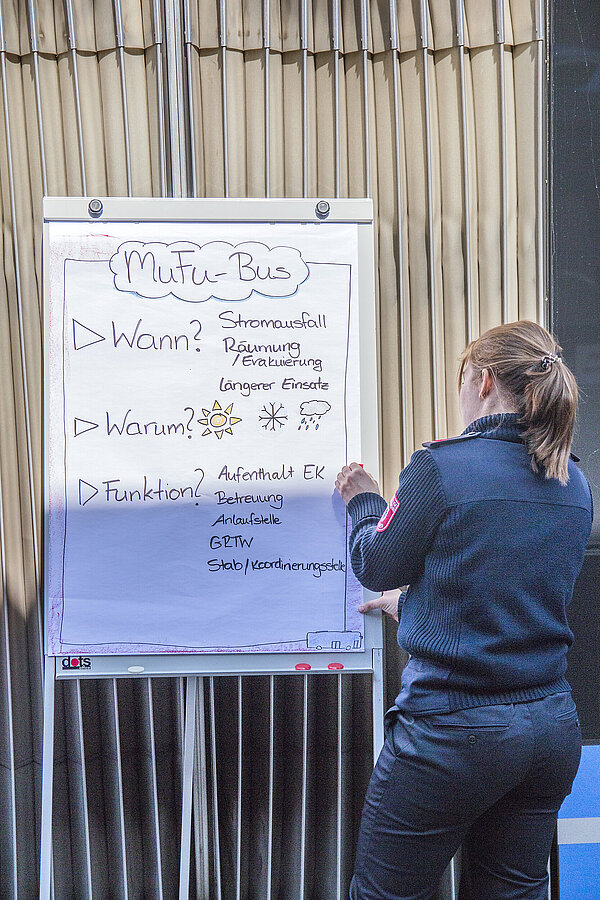 MuFu-Bus
Wann?
Stromausfall
Räumung
/Evakuierung
längerer Einsatz
Warum?
Funktion?
Aufenthalt EK
Betreuung
Anlaufstelle
GRTW
Stab/Koordinierungsstelle
dots